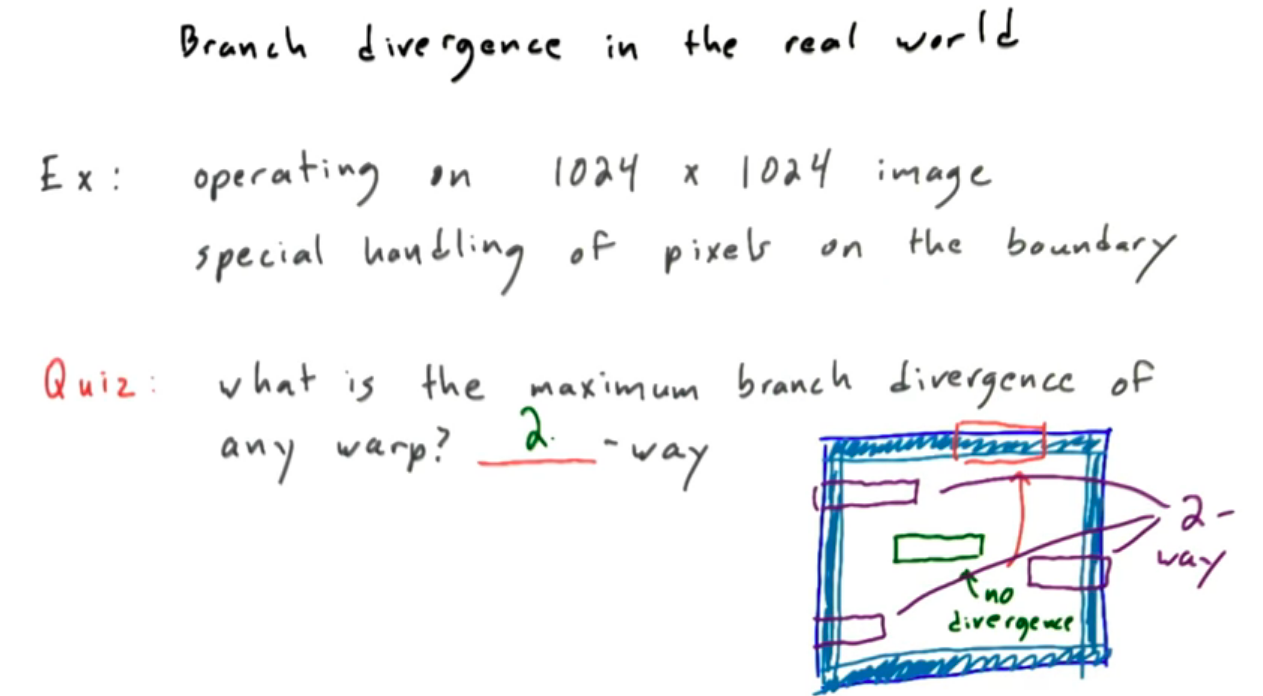 Branch divergence in the real world
Ex: operating on 1024 x 1024 image
special handling of pixels on the boundary
Quiz: what is the maximum branch divergence of
any warp? 2 -way
2-
way
no
divergence